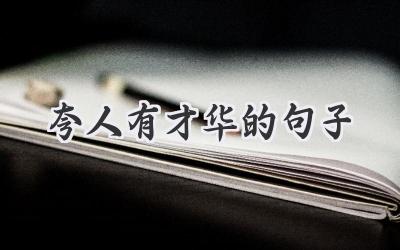 夸人有才华的句子